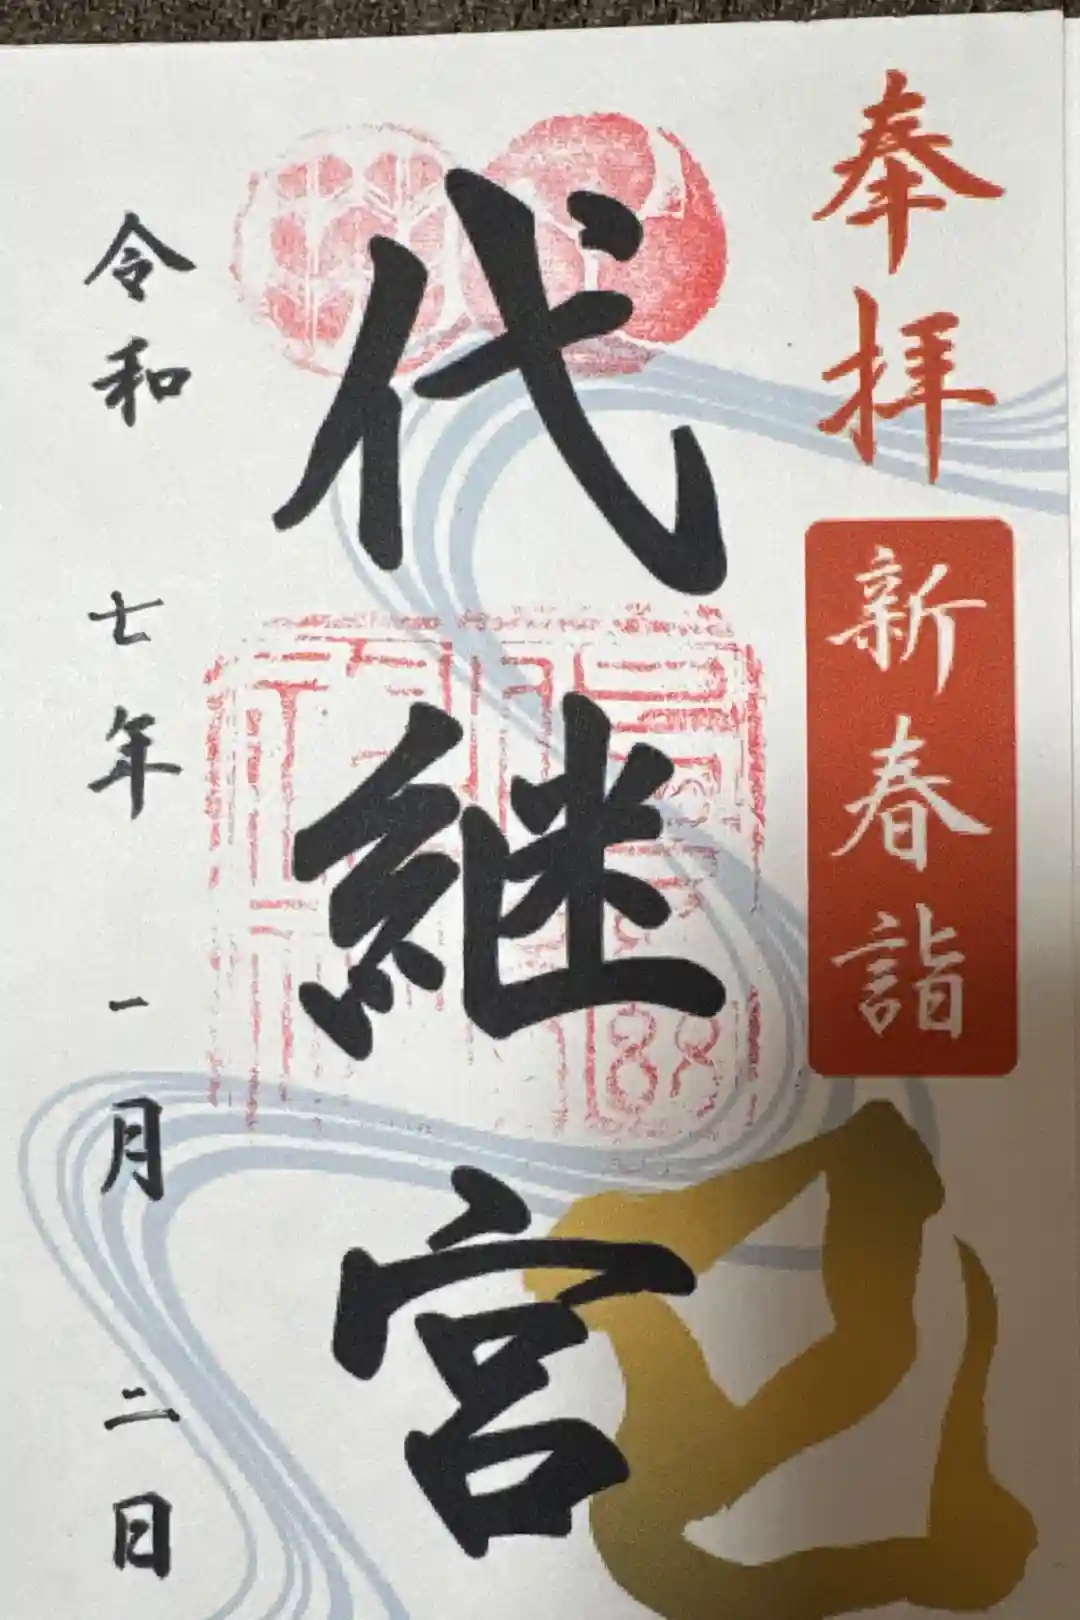 奉拝
新春詣
巳
代継宮
令和 七年 一月 二日